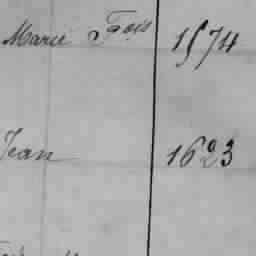 Marie Fçois 1574
Jean 1623